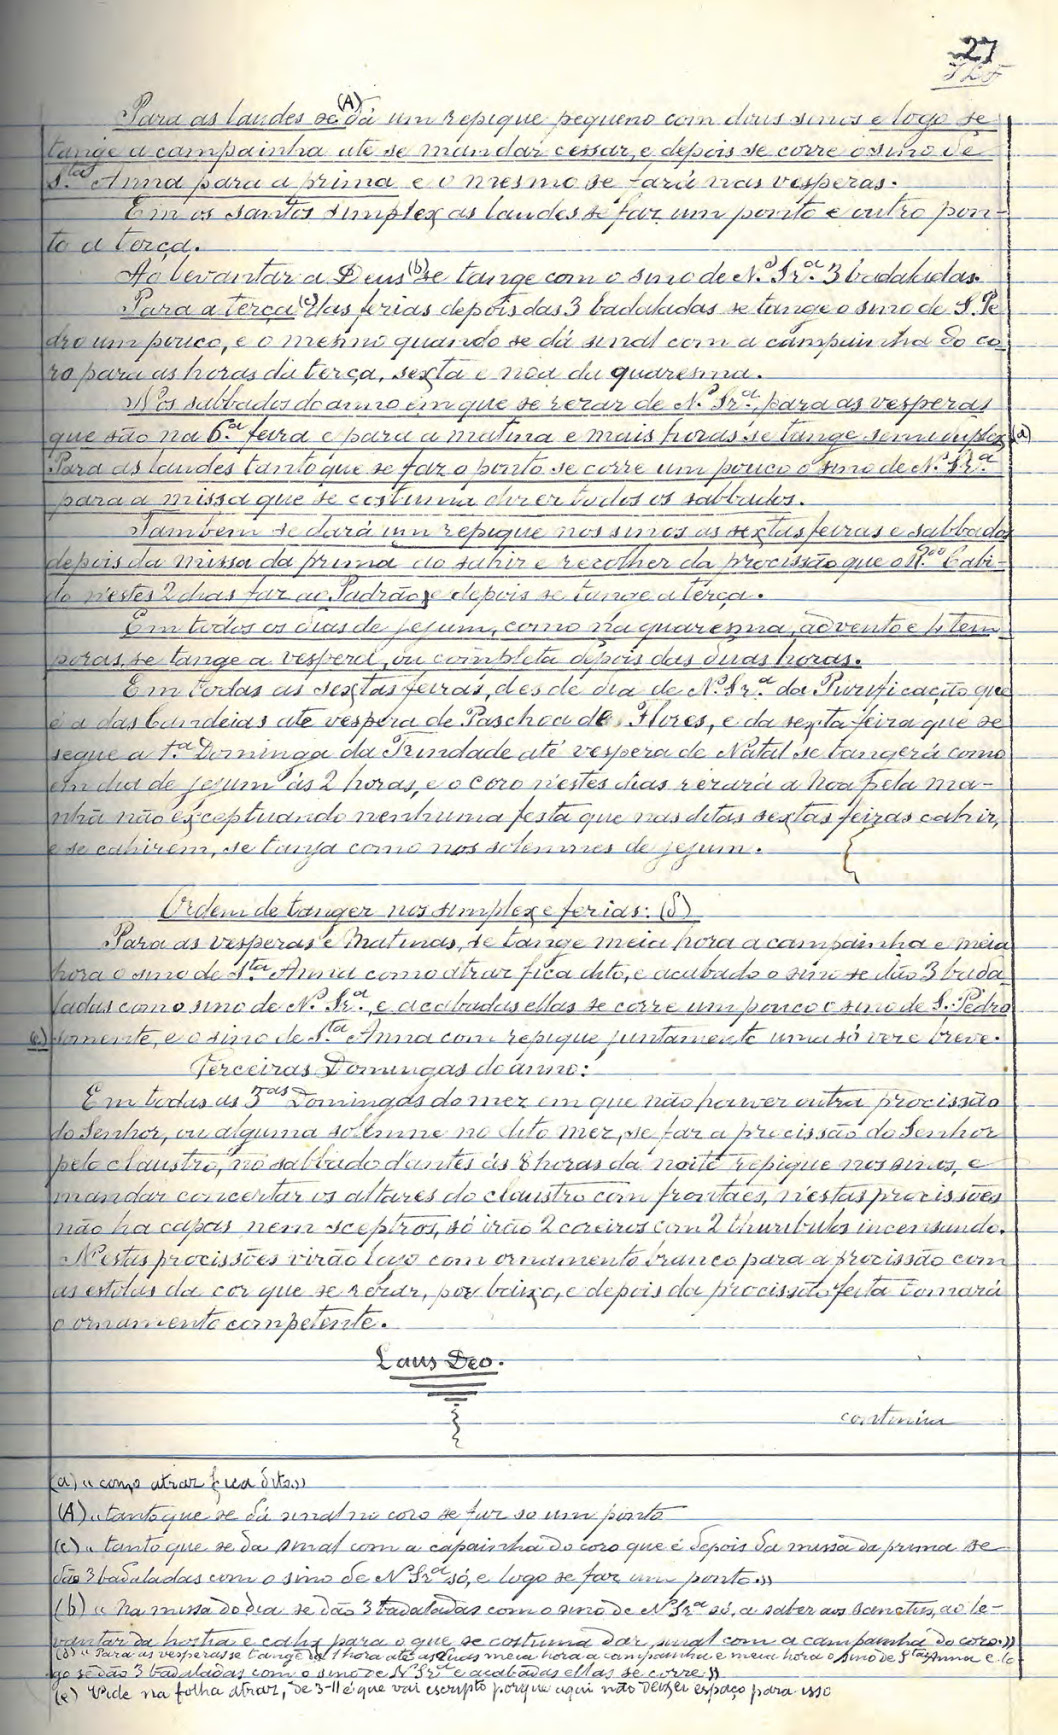 27
Para as laudes se (A) dá um repique pequeno com dous sinos e logo se
tange a campainha até se mandar cessar, e depois se corre o sino de
S.ta Anna para a prima e o mesmo se fará nas vesperas.
Em os santos simplex as laudes se faz um ponto e outro pon-
to a terça.
Ao levantar a Deus (b) se tange com o sino de N.ª Sr.ª 3 badaladas.
Para a terça (c) das ferias depois das 3 badaladas se tange o sino de S. Pe
dro um pouco, e o mesmo quando se dá sinal com a campainha do co
ro para as horas da terça, sexta e noa da quaresma.
Nos sabbados do anno em que se rezar de N.ª Sr.ª, para as vesperas
que são na 6.ª feira e para a matina e mais horas se tange semiduplex (a)
Para as laudes tanto que se faz o ponto se corre um pouco o sino de N.ª Sr.ª
para a missa que se costuma dizer todos os sabbados.
Tambem se dará um repique nos sinos as sextas feiras e sabbados
depois da missa da prima ao sahir e recolher da procissão que o R.do Cabi-
do n'estes 2 dias faz ao Padrão, e depois se tange a terça.
Em todos os dias de jejum, como na quaresma, advento e 4 tem
poras, se tange a vespera, ou completa depois das duas horas.
Em todas as sextas feiras, desde dia de N.ª Sr.ª da Purificação que
é a das Candeias até vespera de Paschoa de Flores, e da sexta feira que se
segue a 1.ª Dominga da Trindade até vespera de Natal se tangerá como
em dia de jejum ás 2 horas, e o coro n'estes dias rezará a Noa pela ma-
nhã não exceptuando nenhuma festa que nas ditas sextas feiras cahir,
e se cahirem, se tanja como nos solemnes de jejum.
Ordem de tanger nos simplex e ferias: (d)
Para as vesperas e Matinas, se tange meia hora a campainha e meia
hora o sino de S.ta Anna como atraz fica dito, e acabado o sino se dão 3 bada
ladas com o sino de N.ª Sr.ª, e acabadas ellas se corre um pouco o sino de S. Pedro
(e) somente, e o sino de S.ta Anna com repique juntamente uma só vez e breve.
Terceiras Domingas do anno:
Em todas as 3.as Domingas do mez em que não houver outra procissão
do Senhor, ou alguma solemne no dito mez, se faz a procissão do Senhor
pelo claustro, no sabbado d'antes ás 8 horas da noite repique nos sinos, e
mandar concertar os altares do claustro com frontaes, n'estas procissões
não ha capas nem sceptros, só irão 2 coreiros com 2 thuribulos incensando.
N'estas procissões virão logo com ornamento branco para a procissão com
as estolas da cor que se rezar, por baixo, e depois da procissão feita tomará
o ornamento competente.
Laus Deo.
continúa
(a) «como atraz fica dito»
(A) «tanto que se dá sinal no coro se faz so um ponto
(c) «tanto que se da sinal com a capainha do coro que é depois da missa da prima se
dão 3 badaladas com o sino de N.ª Sr.ª só, e logo se faz um ponto.»
(b) «Na missa do dia se dão 3 badaladas com o sino de N.ª Sr.ª só, a saber aos Sanctus, ao le-
vantar da hostia e calix para o que se costuma dar sinal com a campainha do coro.»
(d) «Para as vesperas se tange da 1 hora até as duas meia hora a campainha e meia hora o sino de S.ta Anna e lo-
go se dão 3 badaladas com o sino de N.ª Sr.ª e acabadas ellas se corre»
(e) Vide na folha atraz, de 3-11 é que vai escripto porque aqui não deixei espaço para isso